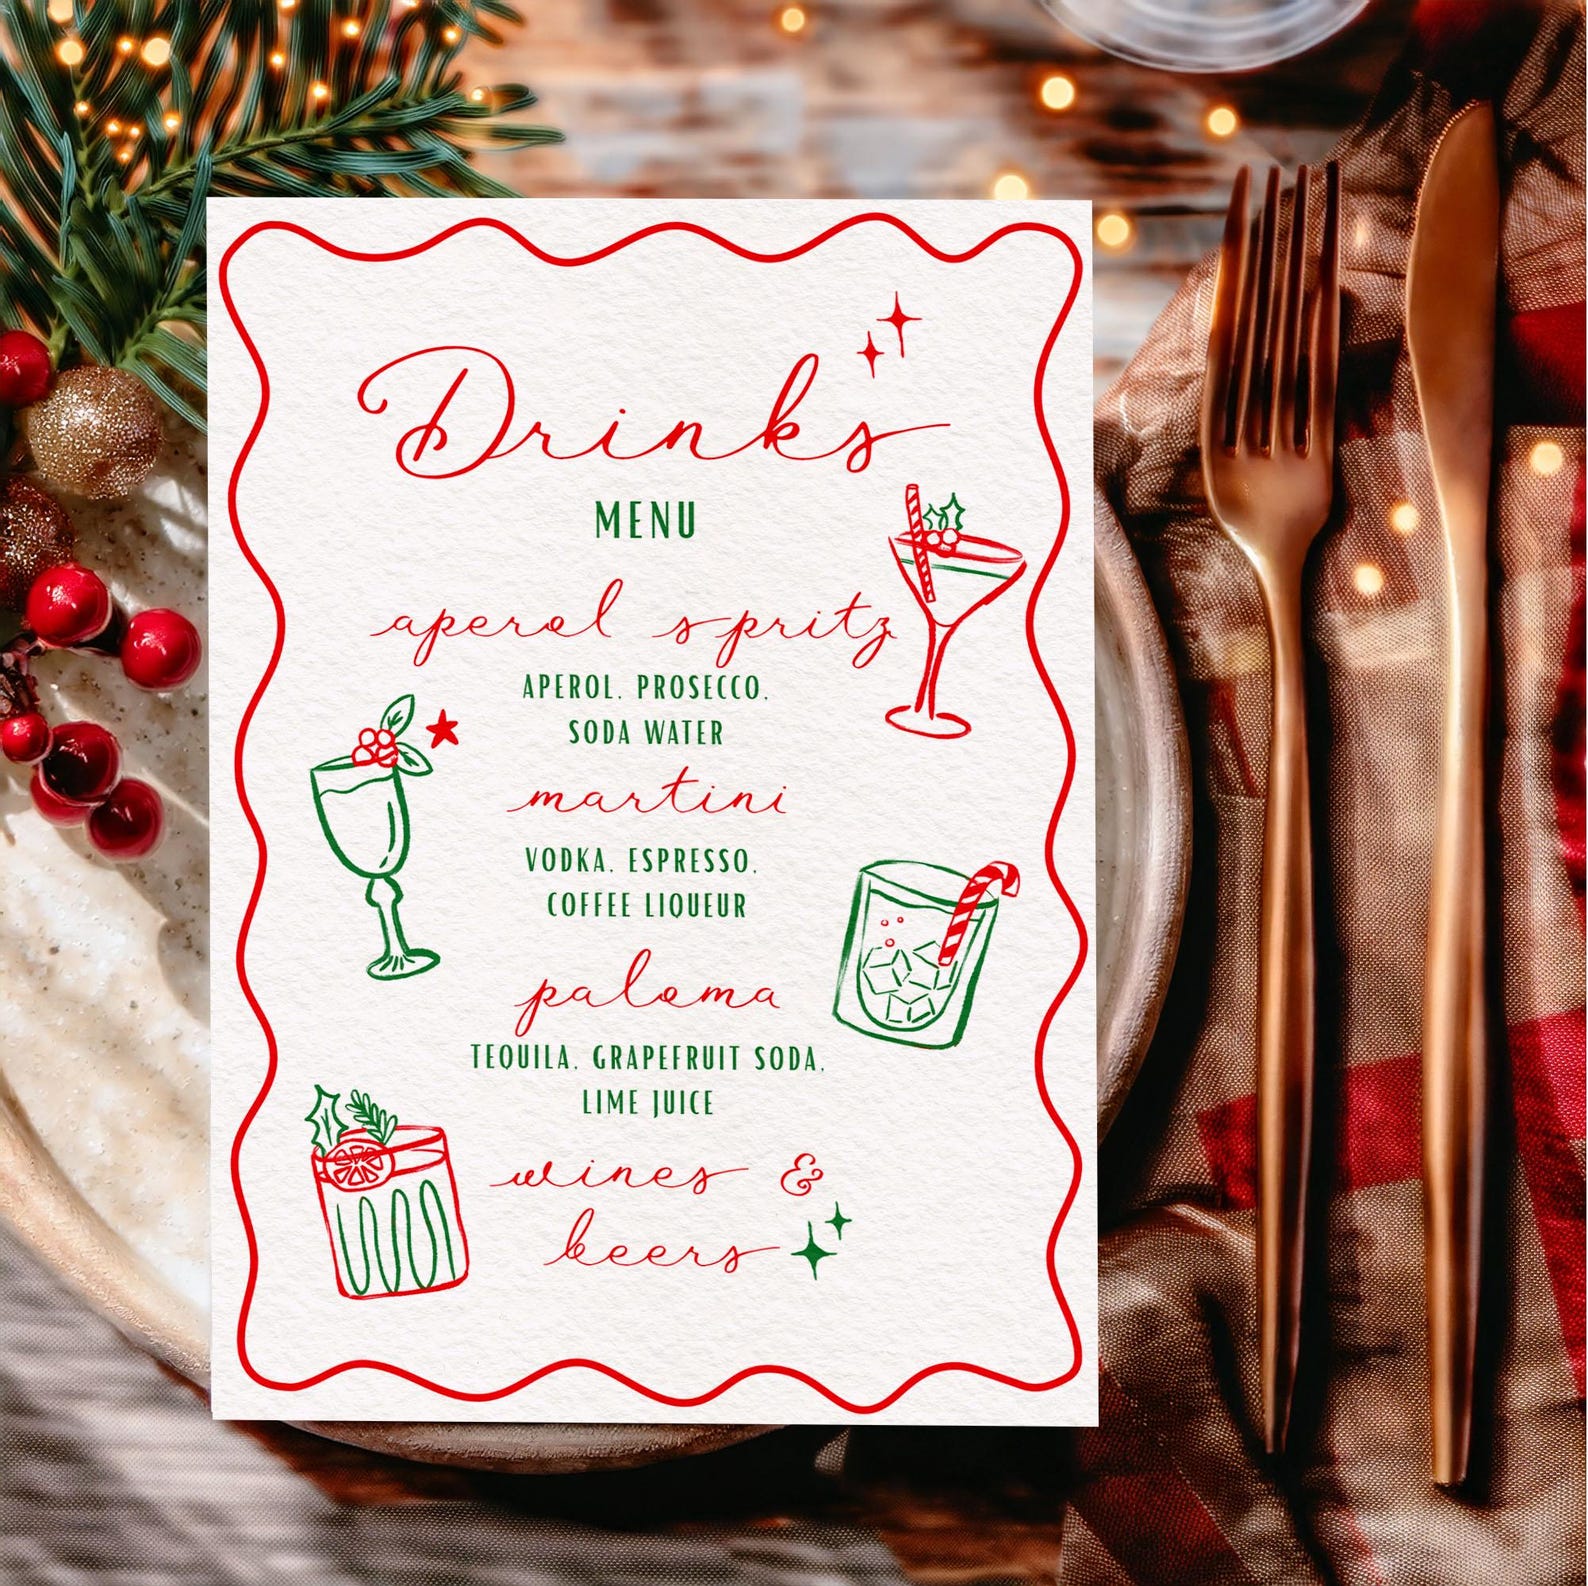 Drinks
MENU
aperol spritz
APEROL, PROSECCO,
SODA WATER
martini
VODKA, ESPRESSO,
COFFEE LIQUEUR
paloma
TEQUILA, GRAPEFRUIT SODA,
LIME JUICE
wines &
beers